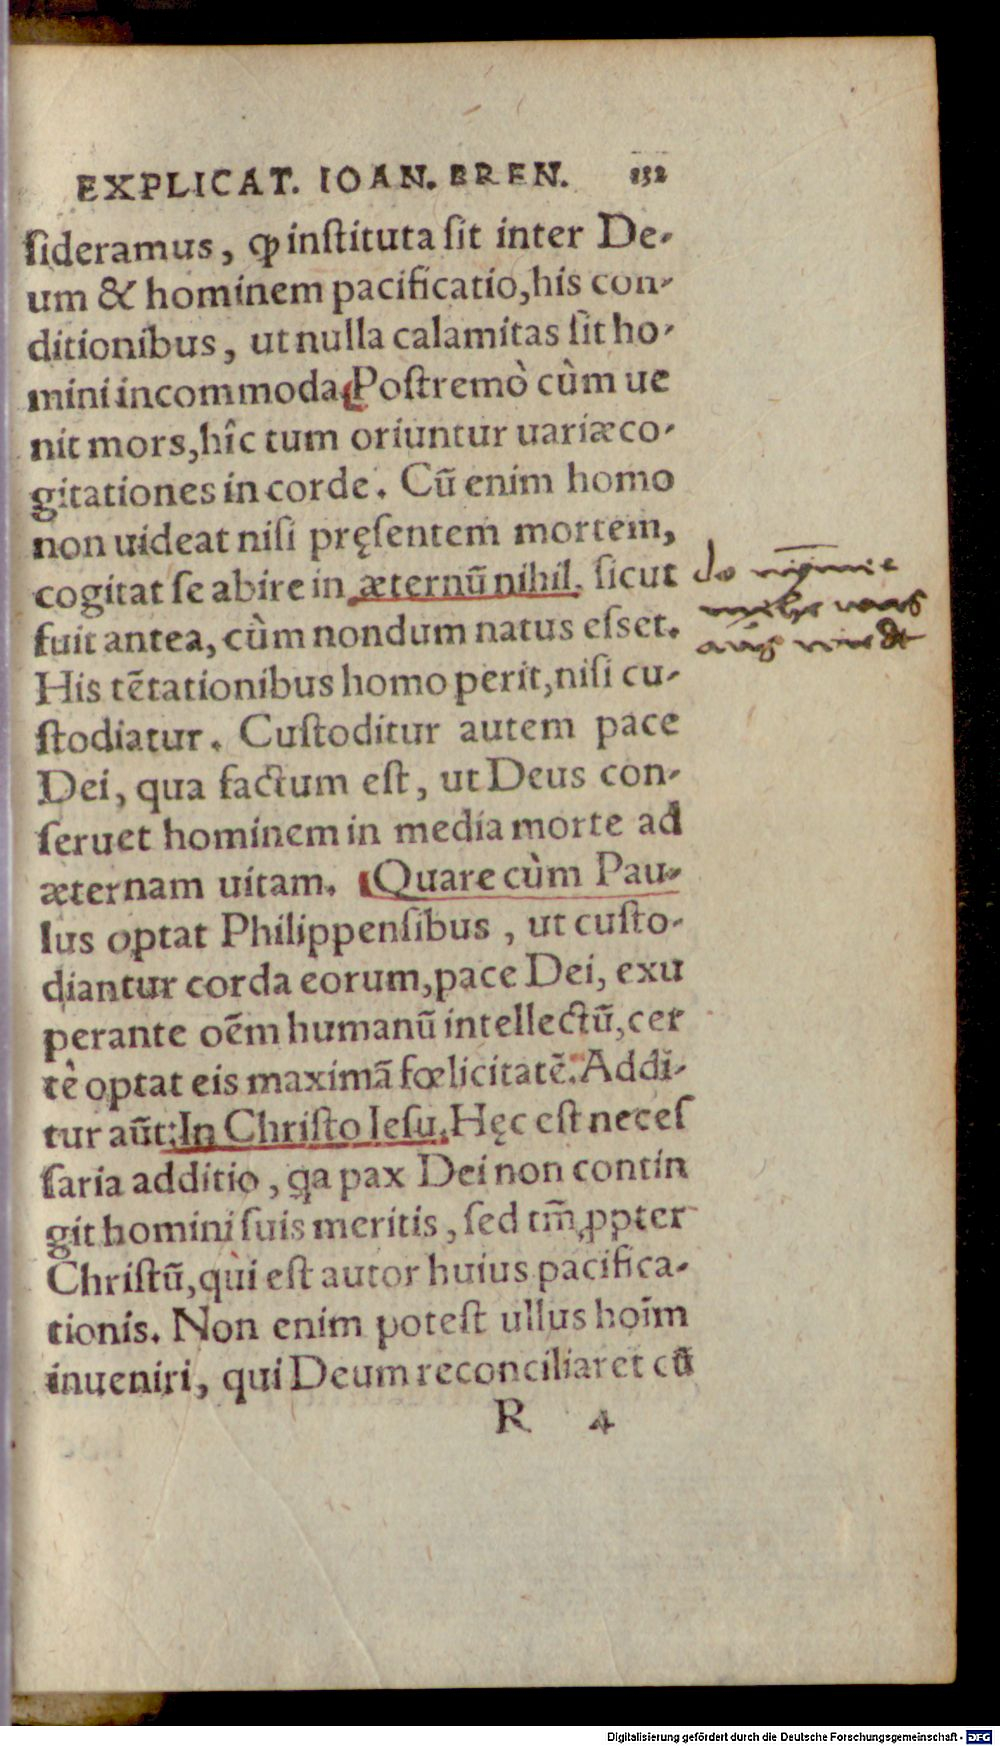 EXPLICAT. IOAN. BREN. 132
ſideramus, ꝙ inſtituta ſit inter De-
um & hominem pacificatio, his con-
ditionibus, ut nulla calamitas ſit ho-
mini incommoda. Poſtremò cùm ue
nit mors, hîc tum oriuntur uariæ co-
gitationes in corde. Cũ enim homo
non uideat niſi pręſentem mortem,
cogitat ſe abire in æternũ nihil, ſicut
fuit antea, cùm nondum natus eſſet.
His tẽtationibus homo perit, niſi cu-
ſtodiatur. Cuſtoditur autem pace
Dei, qua factum eſt, ut Deus con-
ſeruet hominem in media morte ad
æternam uitam. Quare cùm Pau-
lus optat Philippenſibus, ut cuſto-
diantur corda eorum, pace Dei, exu
perante oẽm humanũ intellectũ, cer
tè optat eis maximã fœlicitatẽ. Addi-
tur aũt: In Chriſto Ieſu. Hęc eſt neceſ
ſaria additio, qa pax Dei non contin
git homini ſuis meritis, ſed tm̃ ꝓpter
Chriſtũ, qui eſt autor huius pacifica-
tionis. Non enim poteſt ullus hoĩm
inueniri, qui Deum reconciliaret cũ
R 4
Digitalisierung gefördert durch die Deutsche Forschungsgemeinschaft - DFG